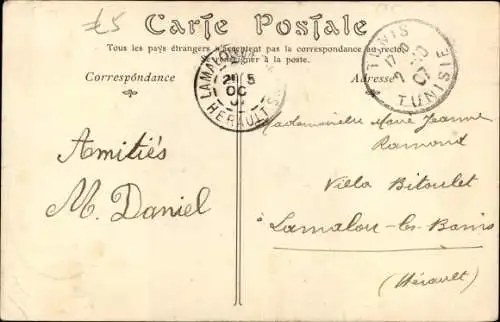 £5
Carte Postale
Tous les pays étrangers n'acceptent pas la correspondance au recto.
Se renseigner à la poste.
Correspondance
Adresse
TUNIS
TUNISIE
LAMALOU
OC
HÉRAULT
Amitiés
M. Daniel
Mademoiselle Marie Jeanne
Ramond
Villa Bitoulet
Lamalou-les-Bains
(Hérault)